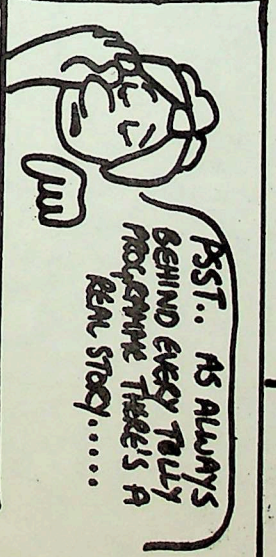 PSST.. AS ALWAYS
BEHIND EVERY TOLLY
PROGRAMME THERE'S A
REAL STORY.....